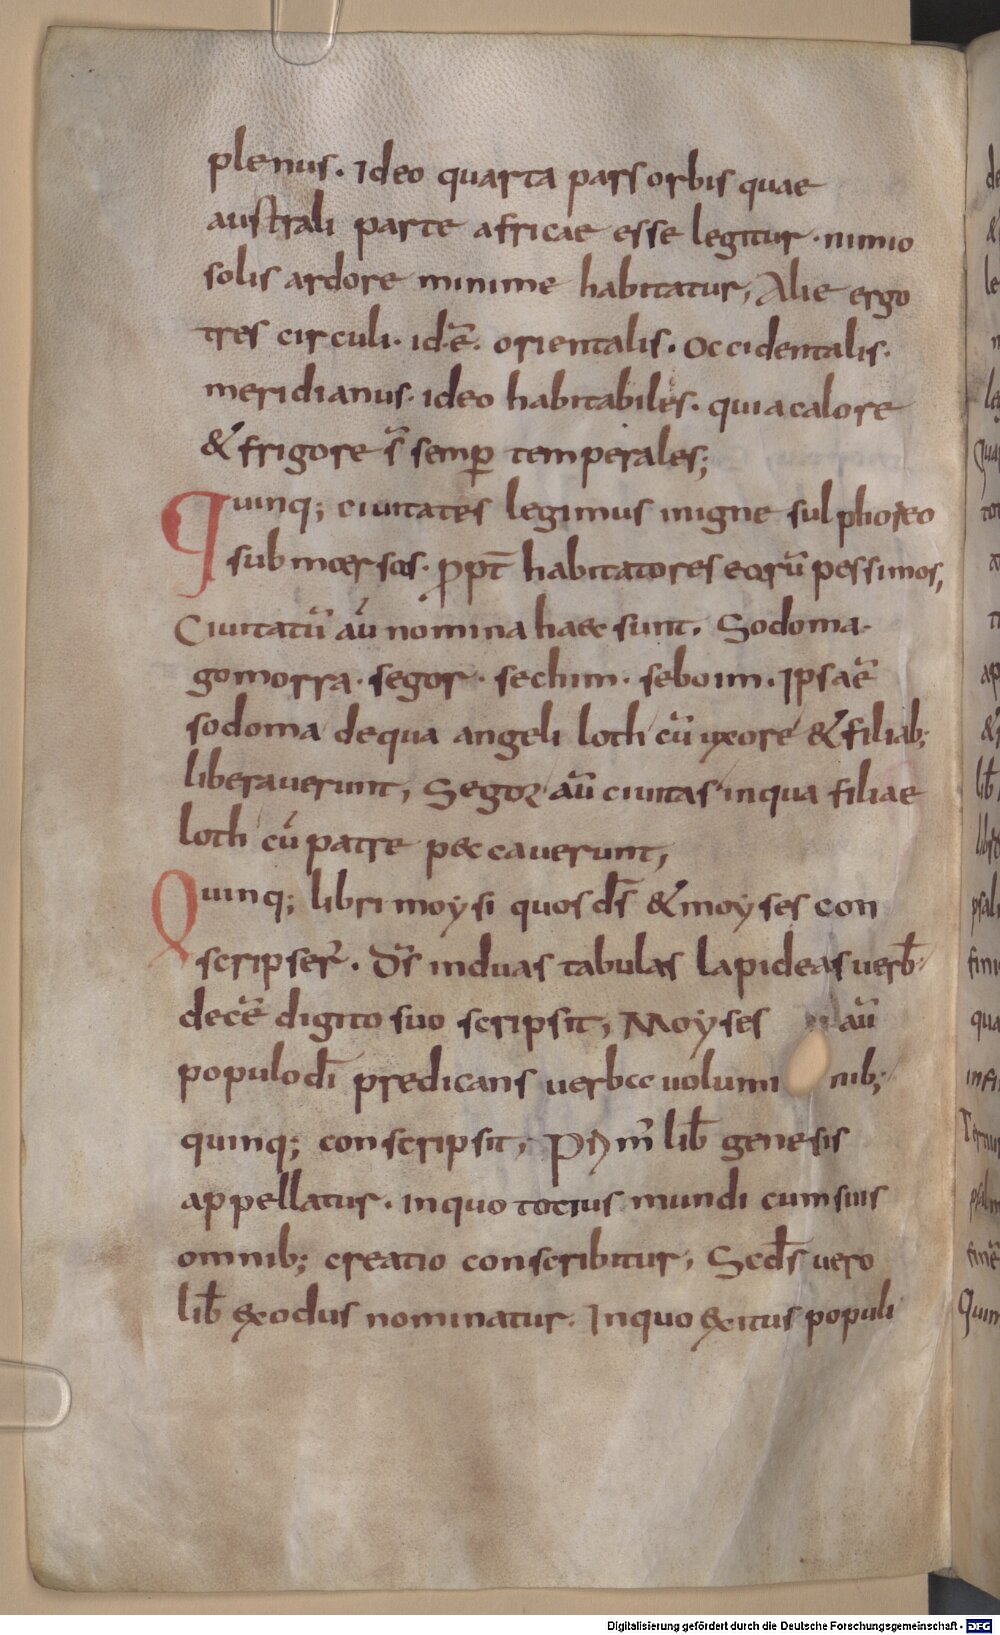 plenus. Ideo quarta pars orbis quae
australi parte africae esse legitur · nimio
solis ardore minime habitatur, Alie ergo
tres circuli · id · ē · orientalis. Occidentalis ·
meridianus · ideo habitabiles · quia calore
& frigore s̄ semꝑ temperales;
Quinq; ciuitates legimus inigne sulphoreo
submersas · ꝓpt̄ habitatores eorū pessimos,
Ciuitatū aū nomina haec sunt. Sodoma ·
gomorra · segor · sechim · seboim. Ipsa ē
sodoma de qua angeli loth cū uxore & filiab;
liberauerunt, Segor aū ciuitas inqua filiae
loth cū patre peccauerunt,
Quinq; libri moysi quos d̄s & moyses con
scripser̄. D̄s induas tabulas lapideas uerb̄
decē digito suo scripsit, Moyses aū
populo dī predicans uerba uolumi nib;
quinq; conscripsit, Prim̄ lib̄ genesis
appellatur. Inquo totius mundi cum suis
omnib; creatio conscribitur, Scd̄s uero
lib̄ exodus nominatur. Inquo exitus populi
Digitalisierung gefördert durch die Deutsche Forschungsgemeinschaft - DFG